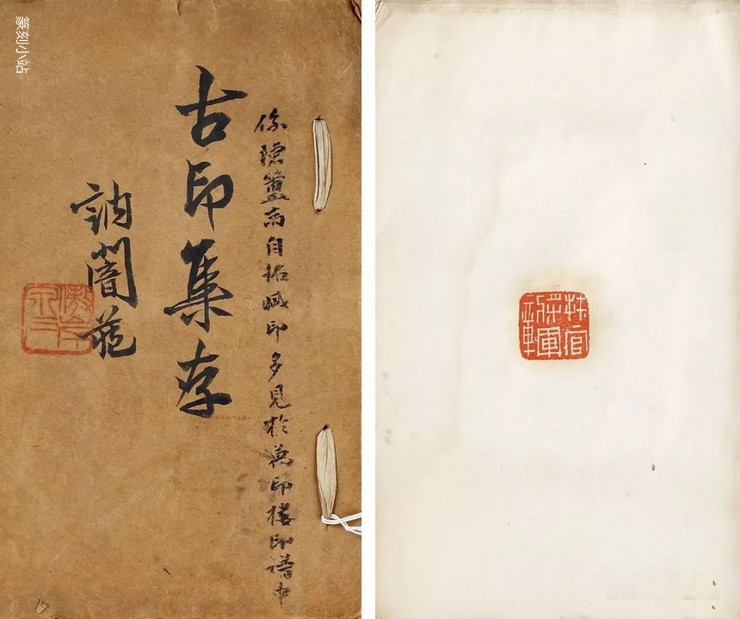 篆刻小站
係陳簠斋自拓藏印多見於萬印楼印譜中
古印集存
訥闇